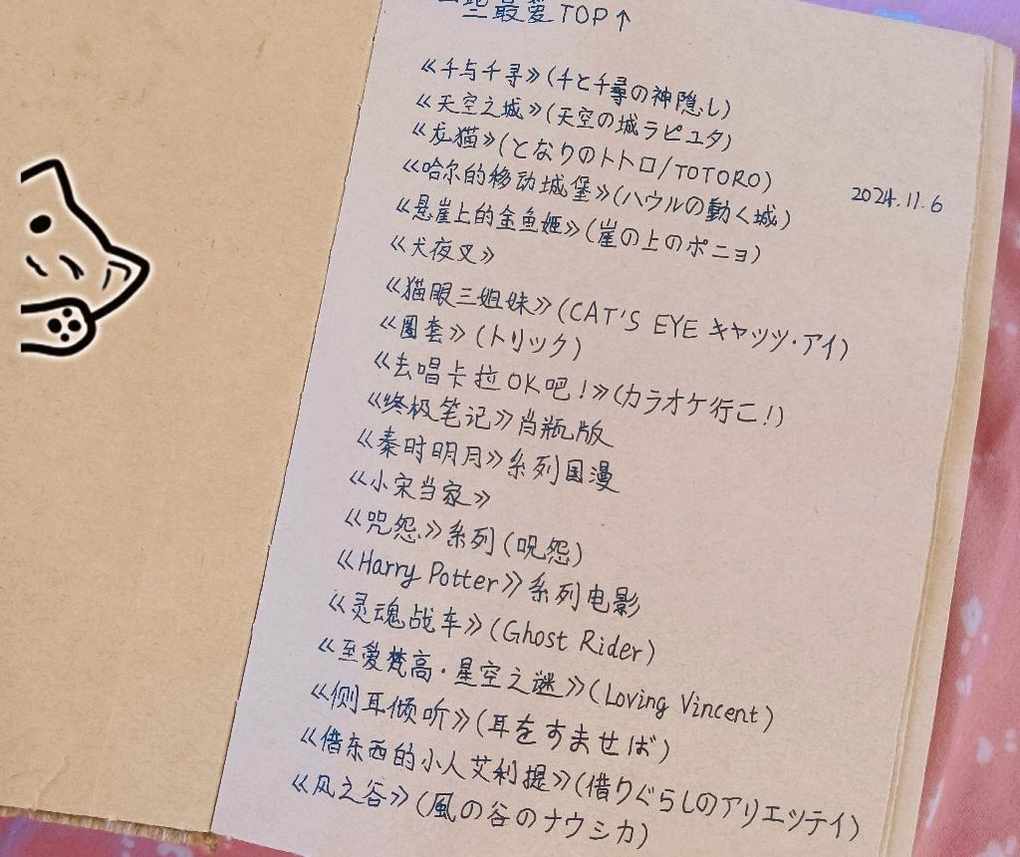 最爱TOP↑
《千与千寻》(千と千尋の神隠し)
《天空之城》(天空の城ラピュタ)
《龙猫》(となりのトトロ/TOTORO)
2024.11.6
《哈尔的移动城堡》(ハウルの動く城)
《悬崖上的金鱼姬》(崖の上のポニョ)
《犬夜叉》
《猫眼三姐妹》(CAT'S EYE キャッツ·アイ)
《圈套》(トリック)
《去唱卡拉OK吧!》(カラオケ行こ!)
《终极笔记》肖瓶版
《秦时明月》系列国漫
《小宋当家》
《咒怨》系列(呪怨)
《Harry Potter》系列电影
《灵魂战车》(Ghost Rider)
《至爱梵高·星空之谜》(Loving Vincent)
《侧耳倾听》(耳をすませば)
《借东西的小人艾利提》(借りぐらしのアリエッティ)
《风之谷》(風の谷のナウシカ)